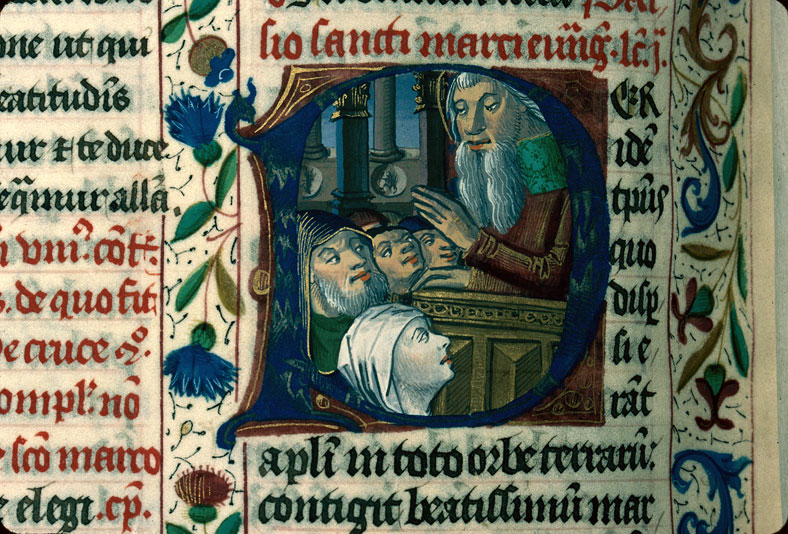 one ut qui
eatitudīs
ur ⁊ te duce
eq̄mur allā.
vniꝰ. cōf.
s. de quo fit
de cruce
ompl'. nō
e scō marco
e elegi. cp̄.
sio sancti marci euāg. lc̄. j.
PER
idē
tp̄us
quo
disp
si e
rāt
apl'i in toto orbe terrarū:
contigit beatissimū mar